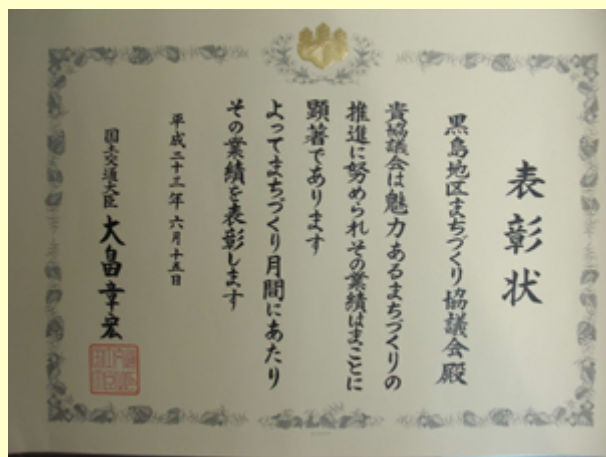 表彰状
黒島地区まちづくり協議会殿
貴協議会は魅力あるまちづくりの
推進に努められその業績はまことに
顕著であります
よってまちづくり月間にあたり
その業績を表彰します
平成二十三年六月十五日
国土交通大臣 大畠章宏